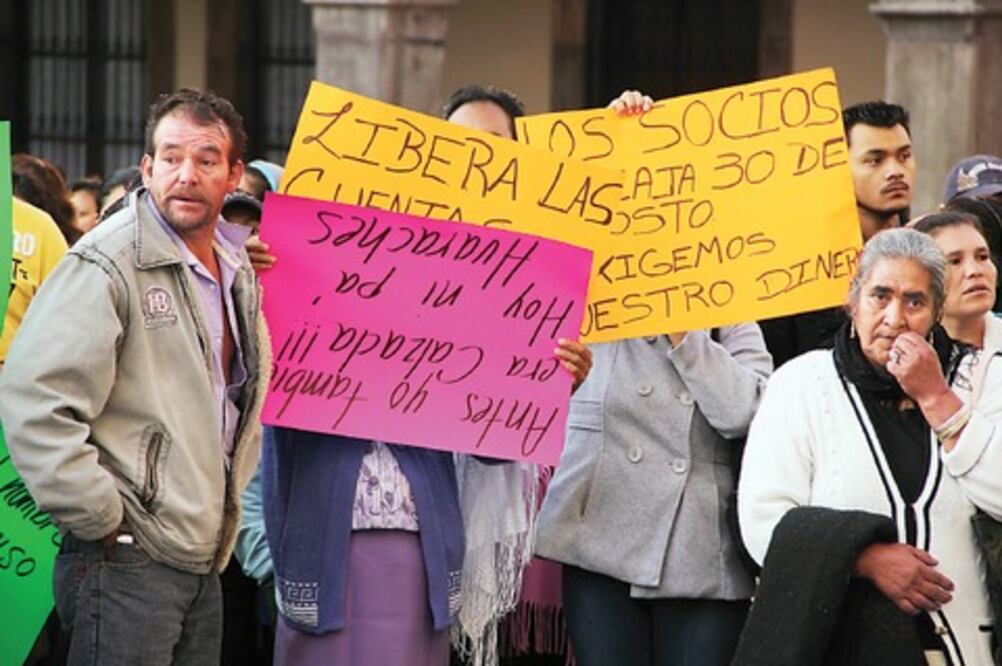 LIBERA LAS
CUENTAS
LOS SOCIOS
CAJA 30 DE
OSTO
XIGEMOS
UESTRO DINER
Antes yo tambie
era Calzada!!!
Hoy ni pa'
Huaraches
USO